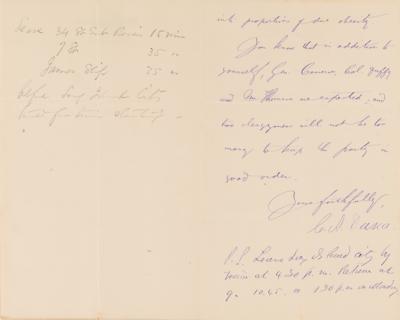 Leave 34 St East River 15 min
7 St 35 "
James Slip 25 "
before Long Island City
time for train starting
into proportions of due obesity
You know that in addition to
yourself, Gen. Cameron, Col. Duffy
and Mr Thomson are expected, and
two clergymen will not be too
many to keep the party in
good order.
Yours faithfully,
C. A. Dana.
P.S. Leave Long Island City by
train at 4.30 p.m. Return at
9. 10.45. or 1.30 p.m. on Monday